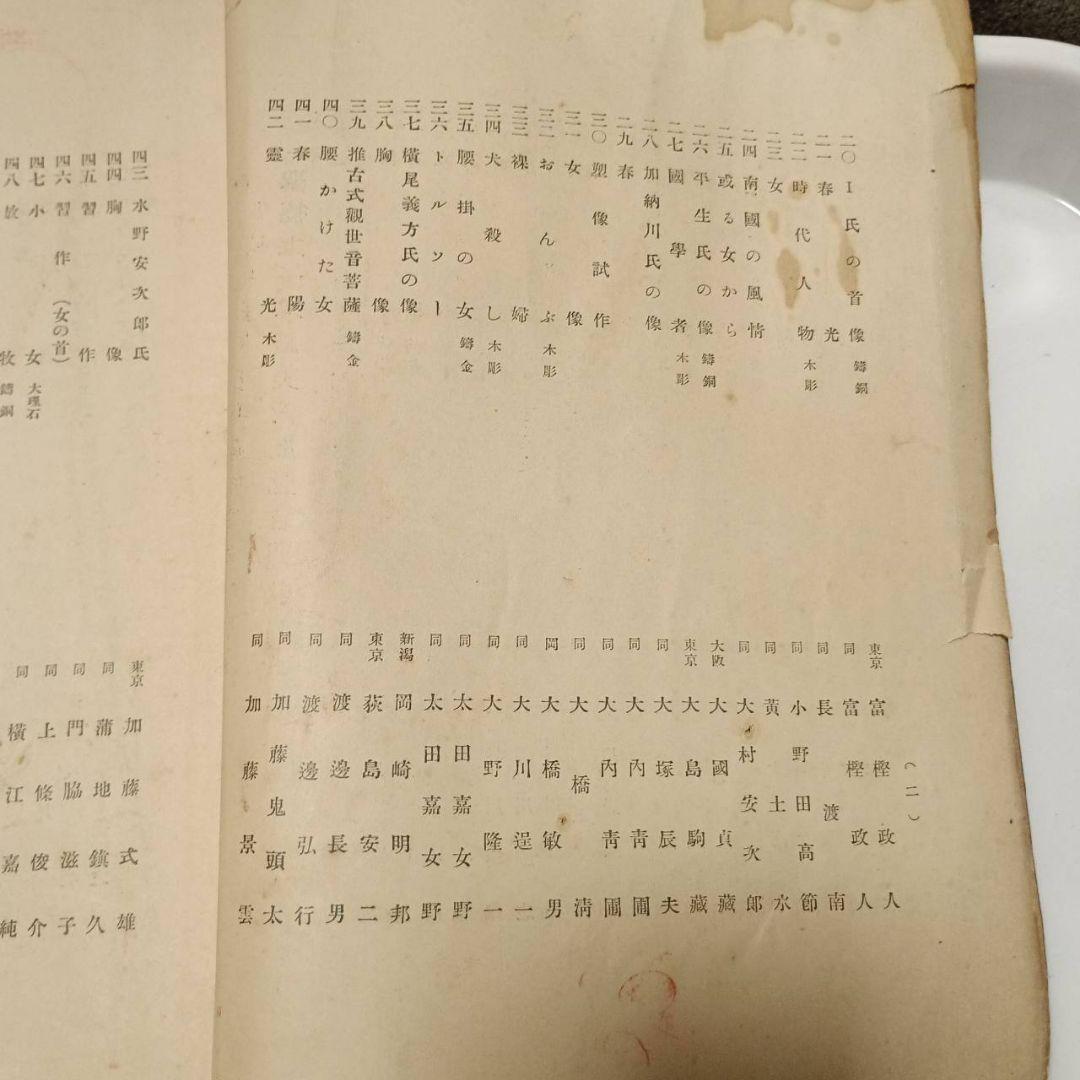 二〇 I氏の首像 鑄銅 東京 富樫政人
二一 春光 同 富樫政人
二二 時代人物 木彫 同 長渡南
二三 女 同 小野田高節
二四 南國の風情 同 黃土水
二五 或る女から 同 大村安次郎
二六 平生氏の像 鑄銅 大阪 大國貞藏
二七 國學者 木彫 東京 大島駒藏
二八 加納川氏の像 同 大塚辰夫
二九 春 同 大內靑圃
三〇 塑像試作 同 大內靑圃
三一 女像 同 大橋淸
三二 おんぶ 木彫 岡 大橋敏男
三三 裸婦 同 大川逞一
三四 犬殺し 木彫 同 大野隆一
三五 腰掛の女 鑄金 同 太田嘉女野
三六 トルソー 同 太田嘉女野
三七 橫尾義方氏の像 新潟 岡崎明邦
三八 胸像 東京 荻島安二
三九 推古式觀世音菩薩 鑄金 同 渡邊長男
四〇 腰かけた女 同 渡邊弘行
四一 春陽 同 加藤鬼頭太
四二 靈光 木彫 同 加藤景雲
（二）
四三 水野安次郎氏 東京 加藤式雄
四四 胸像 同 蒲地鎭久
四五 習作 同 門脇滋子
四六 習作（女の首） 同 上條俊介
四七 小女 大理石 同 橫江嘉純
四八 放牧 鑄銅